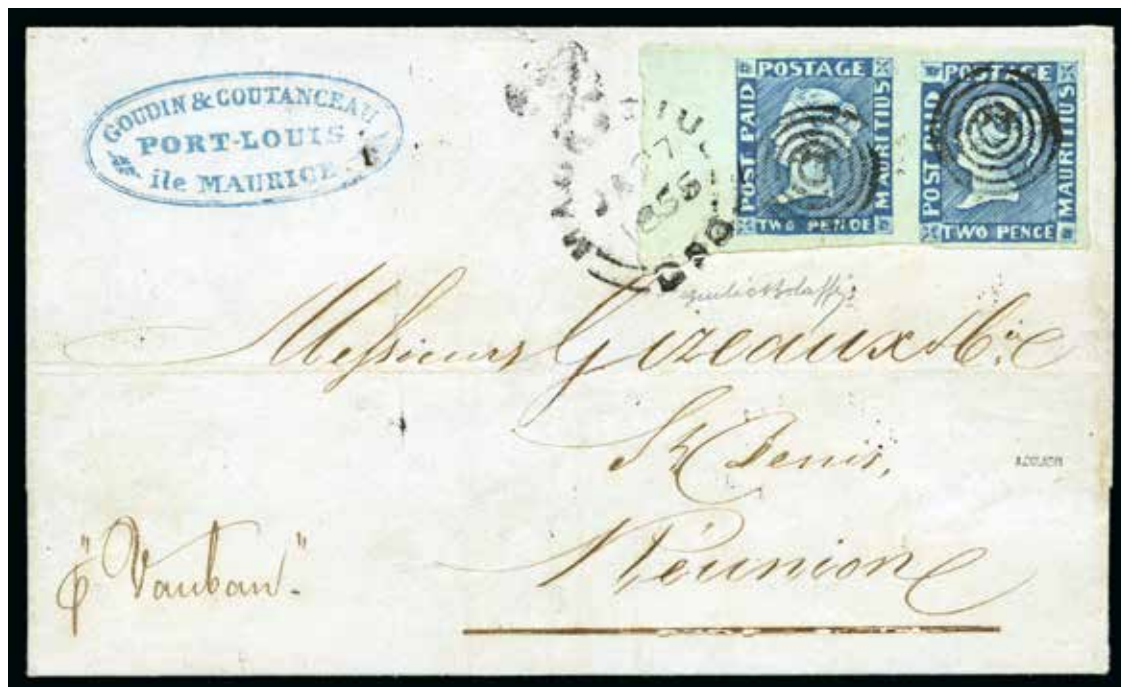 GOUDIN & COUTANCEAU
PORT-LOUIS
île MAURICE
POSTAGE
POST PAID
MAURITIUS
TWO PENCE
POSTAGE
POST PAID
MAURITIUS
TWO PENCE
1855
Messieurs Gizeaux & Cie
St Denis,
Réunion
p "Vauban".